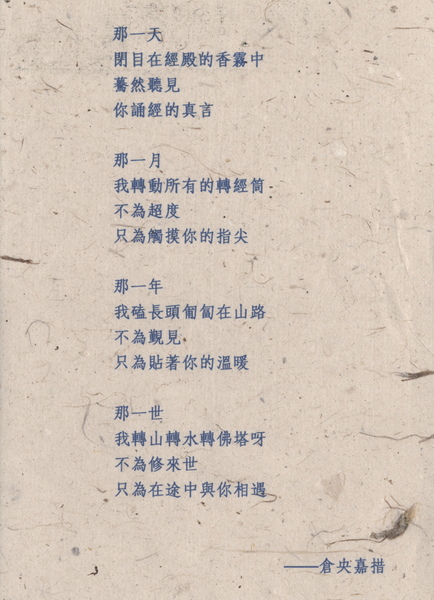 那一天
閉目在經殿的香霧中
驀然聽見
你誦經的真言
那一月
我轉動所有的轉經筒
不為超度
只為觸摸你的指尖
那一年
我磕長頭匍匐在山路
不為覲見
只為貼著你的溫暖
那一世
我轉山轉水轉佛塔呀
不為修來世
只為在途中與你相遇
——倉央嘉措